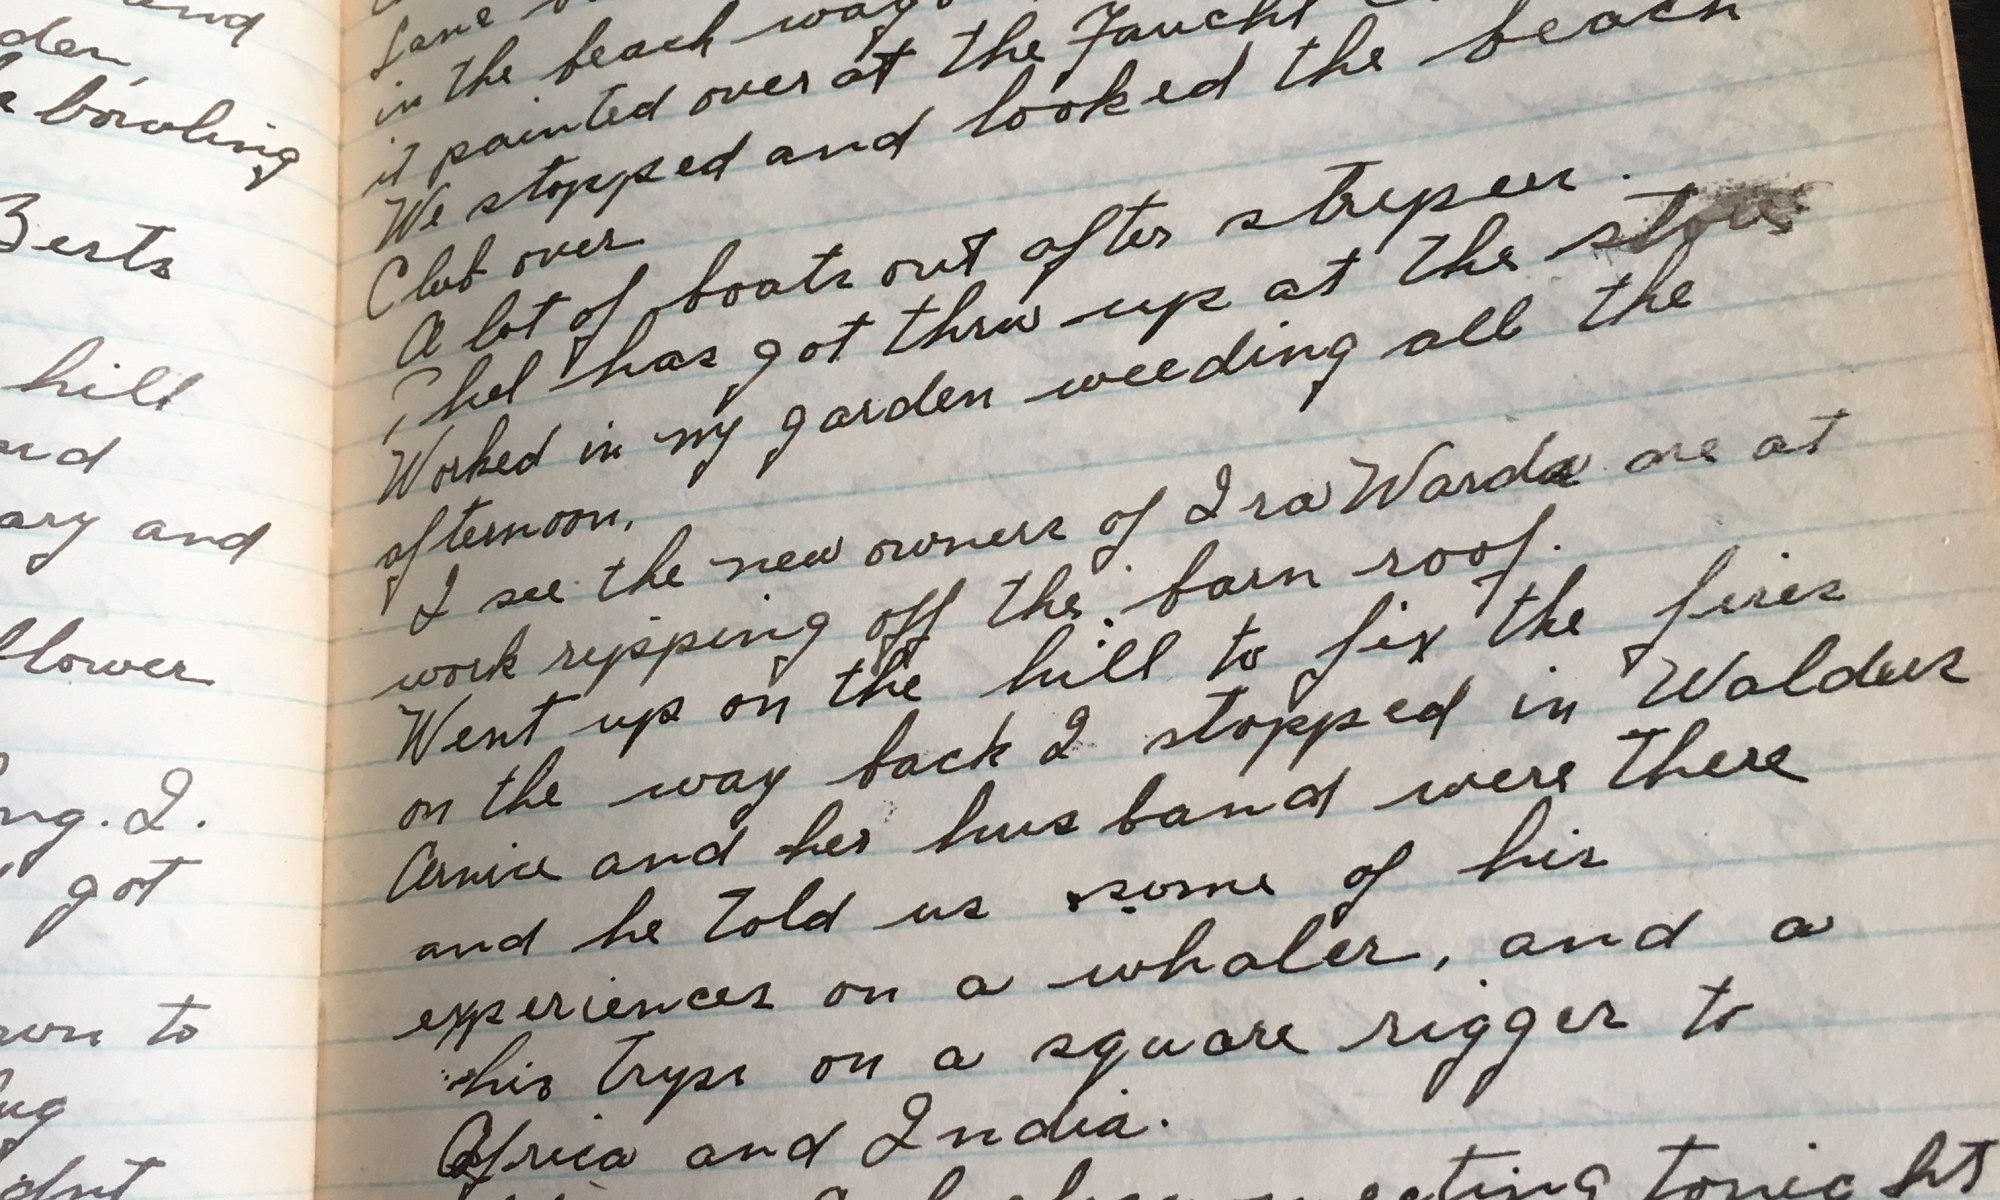 and
den,
bowling
Berts
hill
ary and
flower
ng. I.
got
to
didnt
in the beach wago
it painted over at the Faucht
We stopped and looked the beach
Club over
A lot of boats out after striper.
Phel has got thru up at the store
Worked in my garden weeding all the
afternoon.
I see the new owners of Ira Wards are at
work ripping off the barn roof.
Went up on the hill to fix the fires
on the way back I stopped in Waldens
and her husband were there
and he told us some of his
experiences on a whaler, and a
his trips on a square rigger to
Africa and India.
tonight